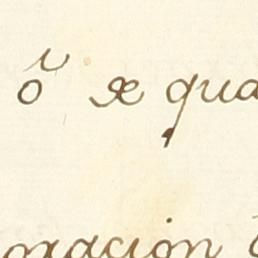 ó se qua
oración